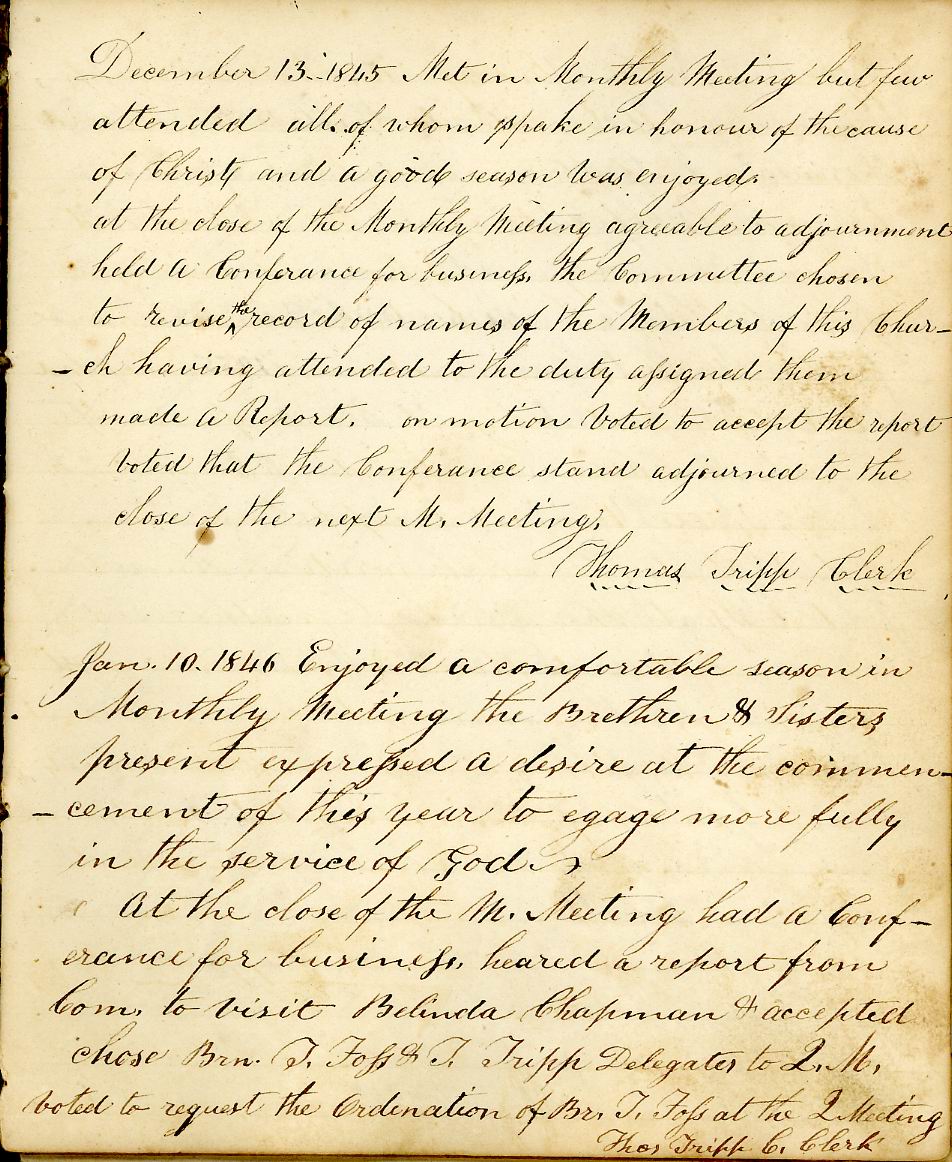 December 13. 1845 Met in Monthly Meeting but few
attended all of whom spake in honour of the cause
of Christ and a good season was enjoyed.
at the close of the Monthly Meeting agreeable to adjournment
held a Conferance for business, the Committee chosen
to revise the record of names of the Members of this Chur-
-ch having attended to the duty assigned them
made a Report. on motion voted to accept the report
voted that the Conferance stand adjourned to the
close of the next M. Meeting.
Thomas Tripp Clerk
Jan. 10. 1846 Enjoyed a comfortable season in
Monthly Meeting the Brethren & Sisters
present expressed a desire at the commen-
-cement of this year to egage more fully
in the service of God.
At the close of the M. Meeting had a Conf-
erance for business, heared a report from
Com. to visit Belinda Chapman & accepted
chose Brn. T. Foss & T. Tripp Delegates to Q. M.
voted to request the Ordenation of Br. T. Foss at the Q Meeting
Thos Tripp C. Clerk